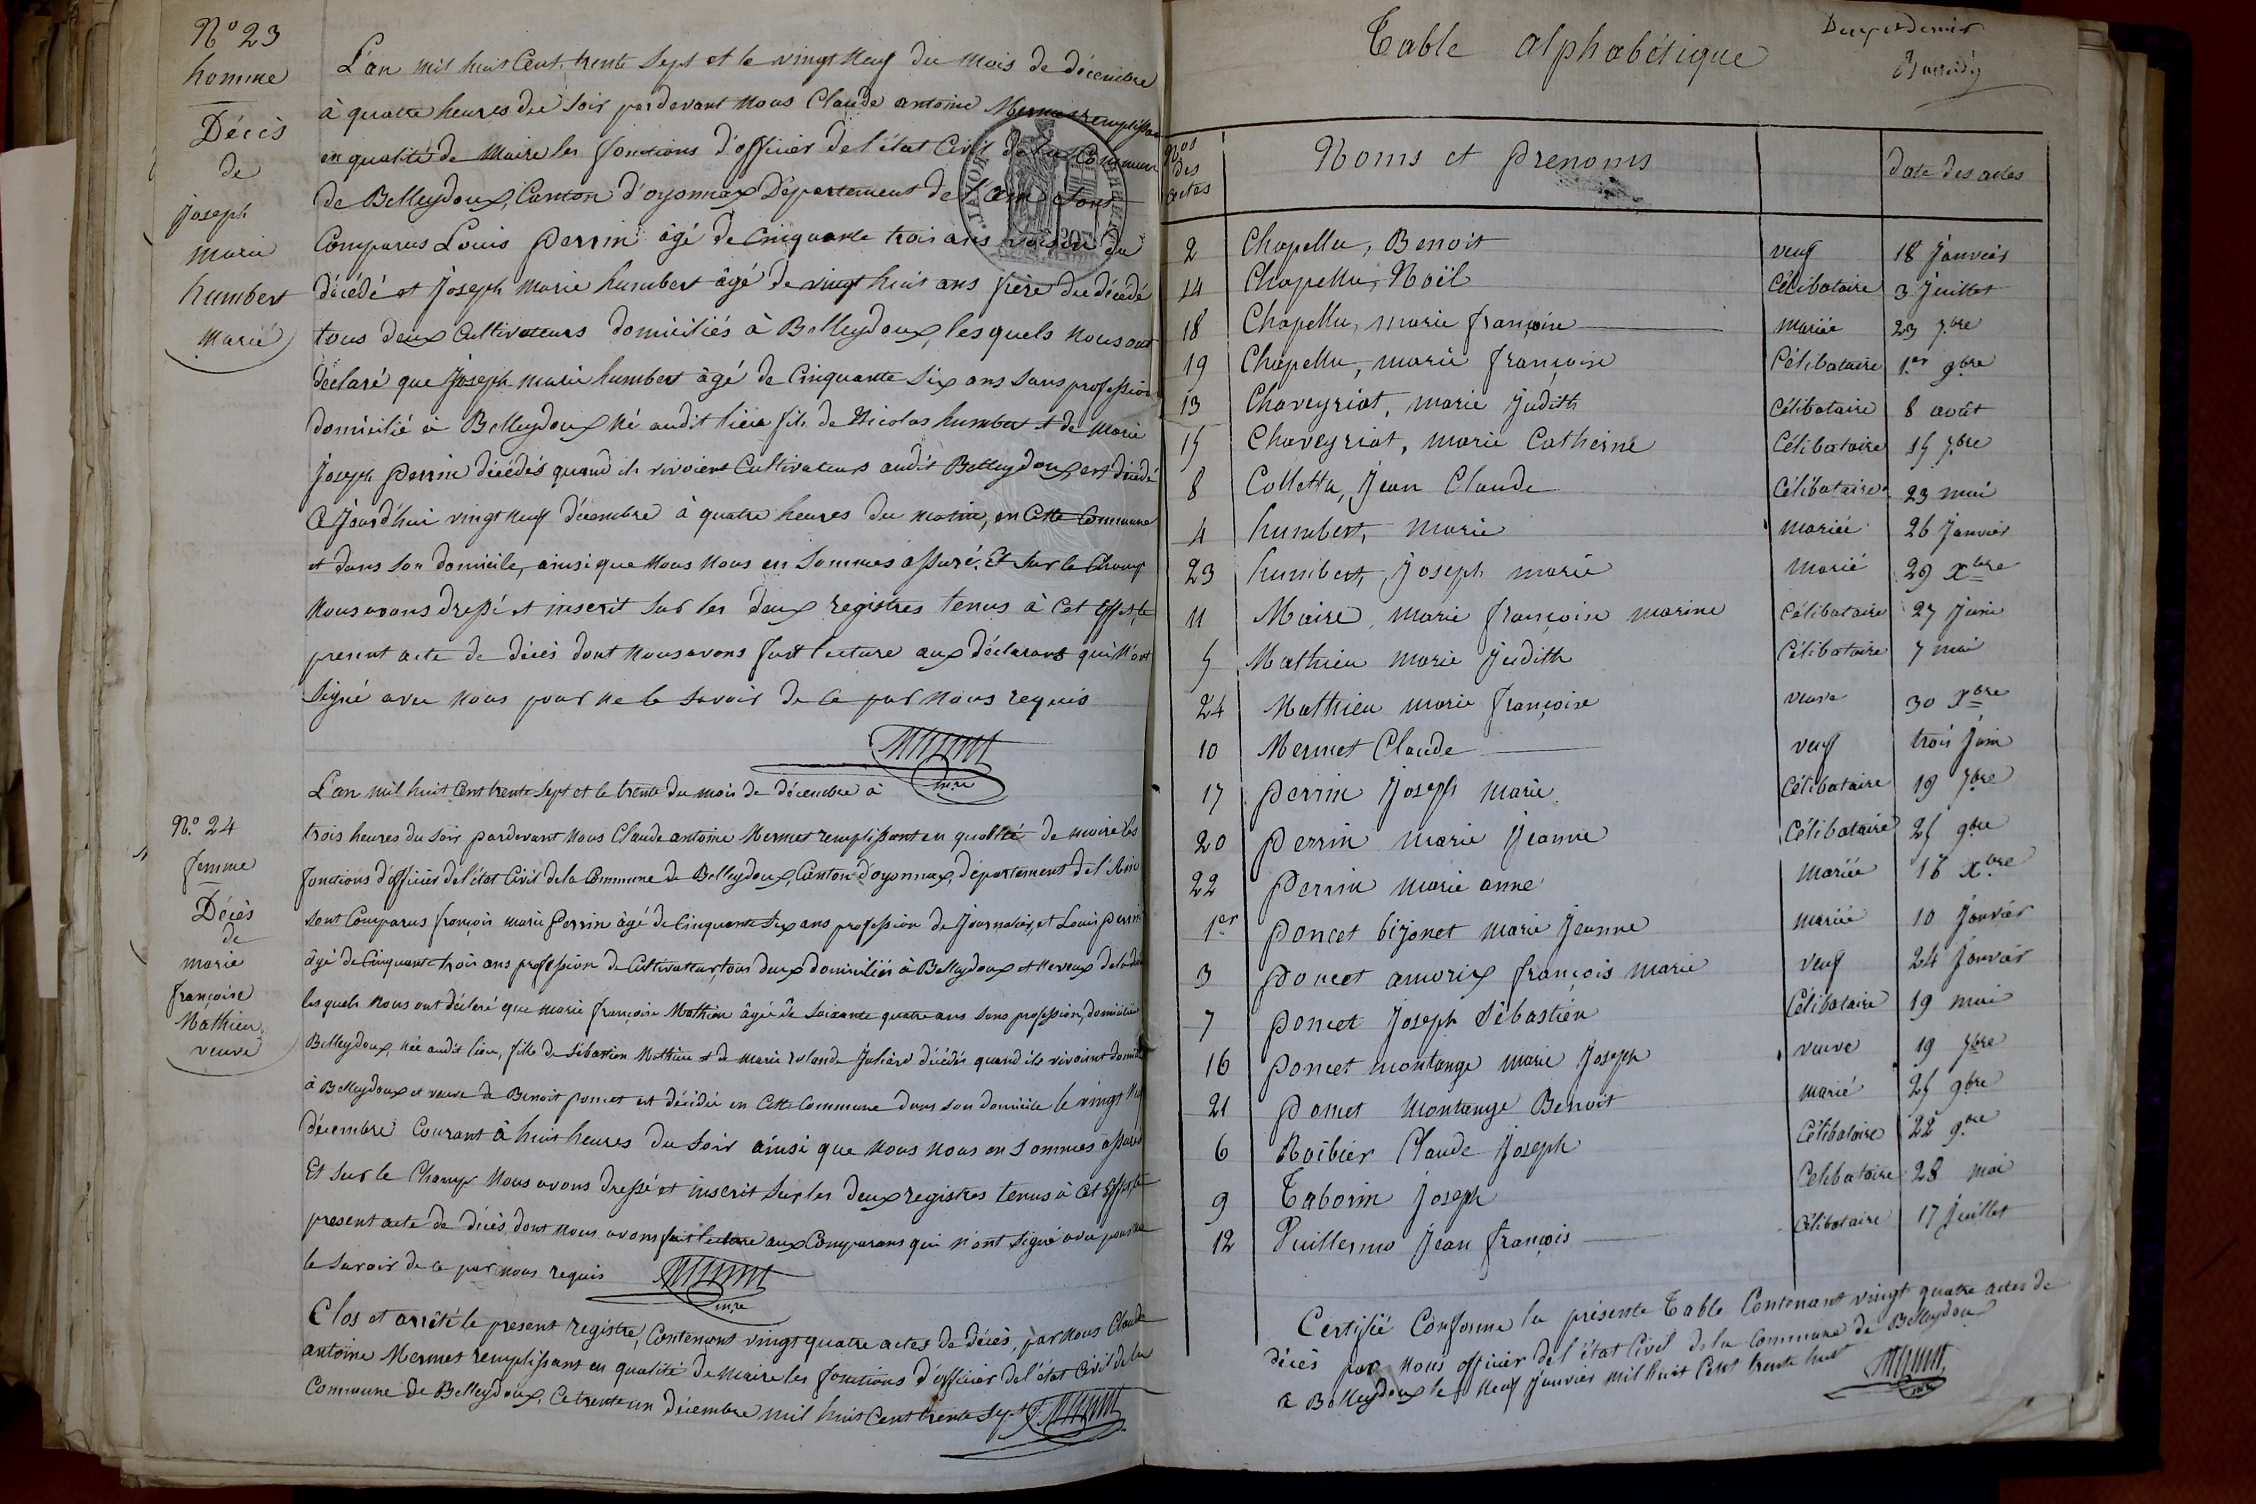 N.o 23
homme
Décès
de
joseph
marie
humbert
marié
L'an mil huit Cent trente sept et le vingt neuf du mois de décembre
à quatre heures du soir pardevant nous Claude antoine Mermet remplissant
en qualité de maire les fonctions d'officier de l'état Civil de la Commune
de Belleydoux, Canton d'oyonnax Département de l'ain sont
Comparus Louis Perrin âgé de Cinquante trois ans voisin du
décédé et Joseph Marie humbert âgé de vingt huit ans frère du décédé
tous deux Cultivateurs domiciliés à Belleydoux, lesquels nous ont
déclaré que Joseph marie humbert âgé de Cinquante six ans sans profession
domicilié à Belleydoux né audit lieu fils de Nicolas humbert et de marie
Joseph Perrin décédés quand ils vivoient Cultivateurs audit Belleydoux est décédé
Ce Jourd'hui vingt neuf décembre à quatre heures du matin, en Cette Commune
et dans son domicile, ainsi que nous nous en sommes assuré. Et sur le Champ
nous avons dressé et inscrit sur les deux registres tenus à Cet effet, le
present acte de décès dont nous avons fait lecture aux déclarans qui n'ont
signé avec nous pour ne le savoir de ce par nous requis
Mermet
m.re
N.o 24
femme
Décès
de
marie
françoise
Mathieu
veuve
L'an mil huit Cent trente sept et le trente du mois de décembre à
trois heures du soir pardevant nous Claude antoine Mermet remplissant en qualité de maire les
fonctions d'officier de l'état Civil de la Commune de Belleydoux, Canton d'oyonnax, département de l'Ain
sont Comparus françois marie Perrin âgé de Cinquante six ans profession de Journalier, et Louis perrin
âgé de Cinquante trois ans profession de Cultivateur tous deux domiciliés à Belleydoux et neveux de la
lesquels nous ont déclaré que marie françoise Mathieu âgée de soixante quatre ans sans profession, domiciliée
Belleydoux, née audit lieu, fille de Sébastien Mathieu et de marie rolande Juliard décédés quand ils vivoient
à Belleydoux et veuve de Benoit poncet est décédée en Cette Commune dans son domicile le vingt neuf
décembre Courant à huit heures du soir ainsi que nous nous en sommes assuré
Et sur le Champ nous avons dressé et inscrit sur les deux registres tenus à Cet effet, le
present acte de décès, dont nous avons fait lecture aux Comparans qui n'ont signé avec pour ne
le savoir de ce par nous requis Mermet
m.re
Clos et arrêté le present registre, Contenant vingt quatre actes de décès, par nous Claude
antoine Mermet remplissant en qualité de Maire les fonctions d'officier de l'état Civil de la
Commune de Belleydoux. Ce trente un décembre mil huit Cent trente sept Mermet
Table alphabétique
N.os des actes Noms et prenoms Date des actes
2 Chapellu, Benoit veuf 18 Janvier
14 Chapellu, Noël Célibataire 3 Juillet
18 Chapellu, marie françoise mariée 23 7.bre
19 Chapellu, marie françoise Célibataire 1.er 9.bre
13 Chaveyriat, marie Judith Célibataire 8 août
15 Chaveyriat, marie Catherine Célibataire 15 7.bre
8 Colletta, Jean Claude Célibataire 23 mai
4 humbert, marie mariée 26 Janvier
23 humbert, Joseph marie Marié 29 X.bre
11 Maire, marie françoise marine Célibataire 27 Juin
5 Mathieu marie Judith Célibataire 7 mai
24 Mathieu marie françoise veuve 30 X.bre
10 Mermet Claude veuf trois Juin
17 perrin Joseph marie Célibataire 19 7.bre
20 perrin marie Jeanne Célibataire 25 9.bre
22 perrin marie anne mariée 16 X.bre
1.er poncet bijonet marie Jeanne mariée 10 Janvier
3 poncet amorix françois marie veuf 24 Janvier
7 poncet Joseph Sébastien Célibataire 19 mai
16 poncet montange marie Joseph veuve 19 7.bre
21 poncet montange Benoit marié 25 9.bre
6 Roibier Claude Joseph Célibataire 22 9.bre
9 Taborin Joseph Celibataire 28 mai
12 Vuillermo Jean françois Célibataire 17 Juillet
Certifié Conforme la présente Table Contenant vingt quatre actes de
décès par nous officier de l'état Civil de la Commune de Belleydoux
a Belleydoux le neuf Janvier mil huit Cent trente huit Mermet
m.re